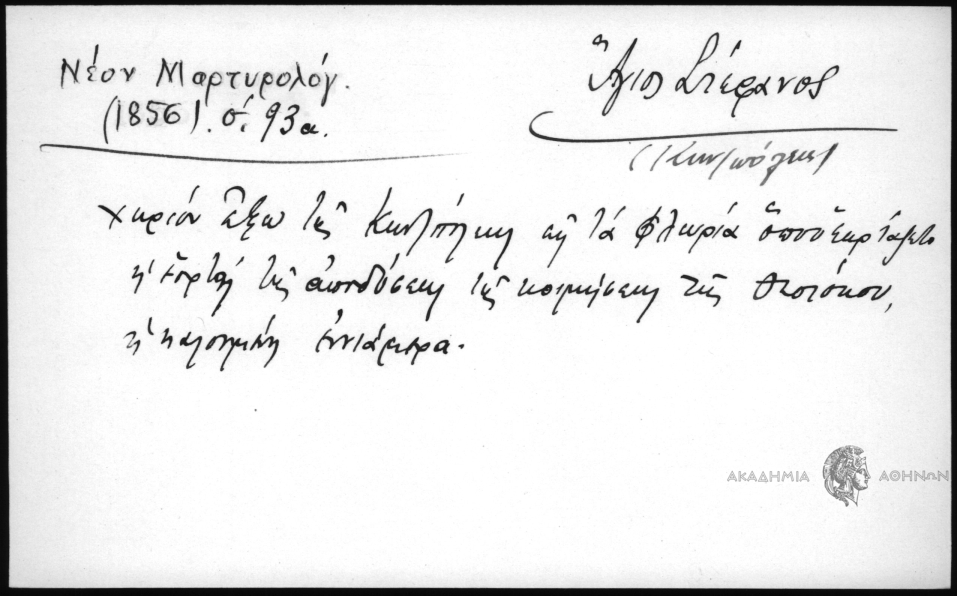 Νέον Μαρτυρολόγ.
(1856). σ. 93α.
Ἅγιος Στέφανος
(Κων/πόλεως)
χωρίον ἔξω τῆς Κων/πόλεως εἰς τὰ Φλωριά ὅπου ἑωρτάζετο
ἡ ἑορτὴ τῆς ἀποδόσεως τῆς κοιμήσεως τῆς Θεοτόκου,
ἡ καλουμένη ἐννιάμερα.
ΑΚΑΔΗΜΙΑ ΑΘΗΝΩΝ